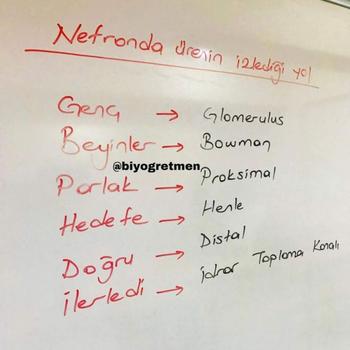 Nefronda ürenin izlediği yol
Genç → Glomerulus
Beyinler → Bowman
@biyogretmen
Parlak → Proksimal
Hedefe → Henle
Doğru → Distal
ilerledi → idrar Toplama Kanalı